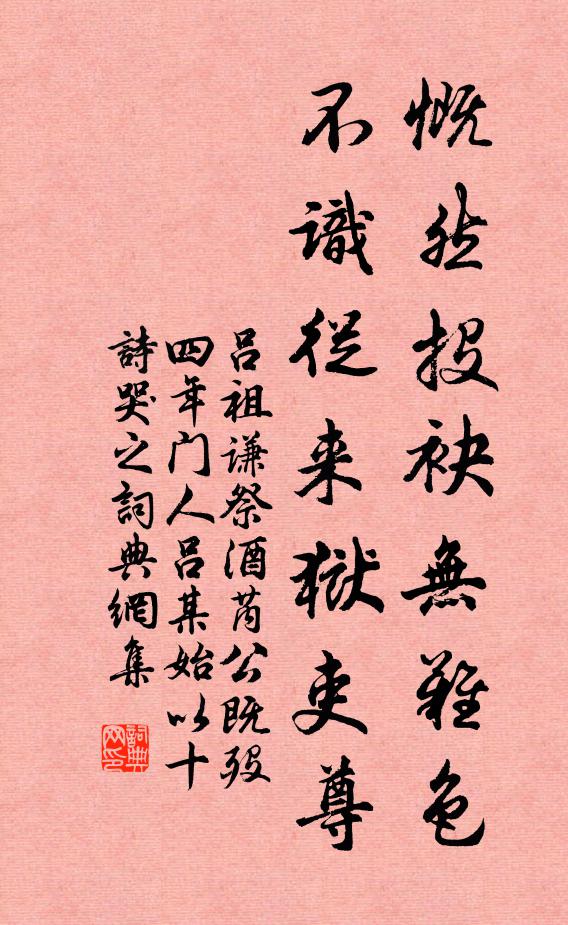 慨然投袂無難色
不識從来獄吏尊
呂祖谦祭酒芮公既殁
四年门人呂某始以十
詩哭之詞典網集
詞典網印